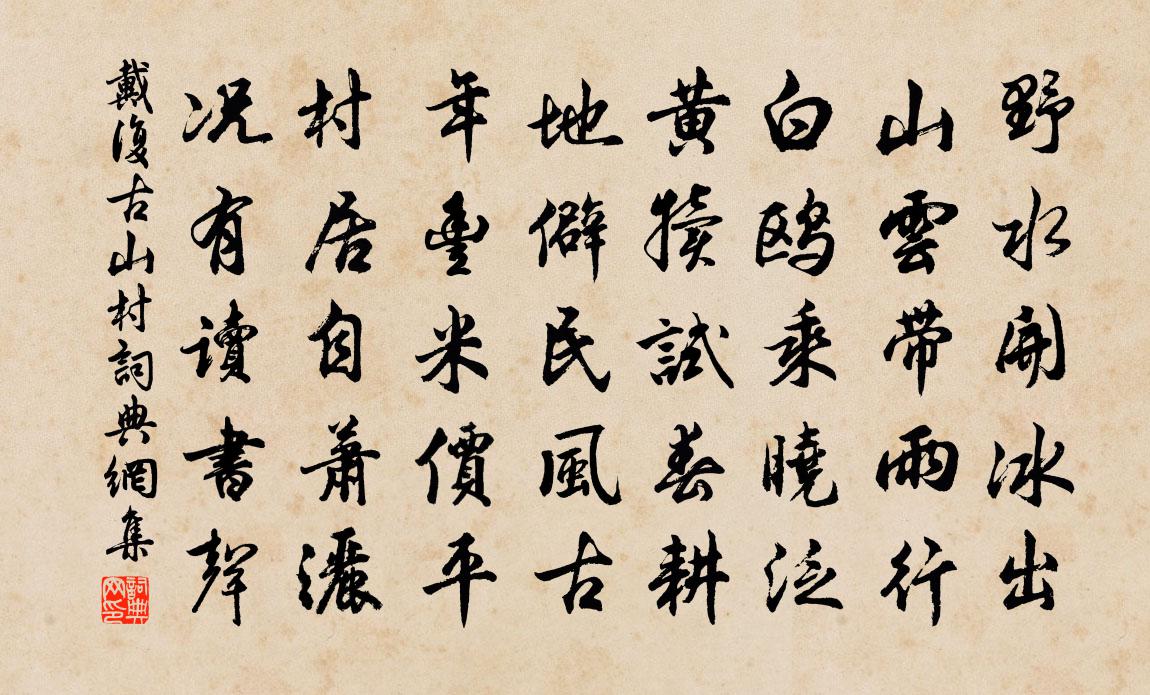 野水開冰出
山雲帶雨行
白鷗乘曉泛
黃犢試春耕
地僻民風古
年豐米價平
村居自蕭灑
況有讀書聲
戴復古山村詞典網集
詞典網印